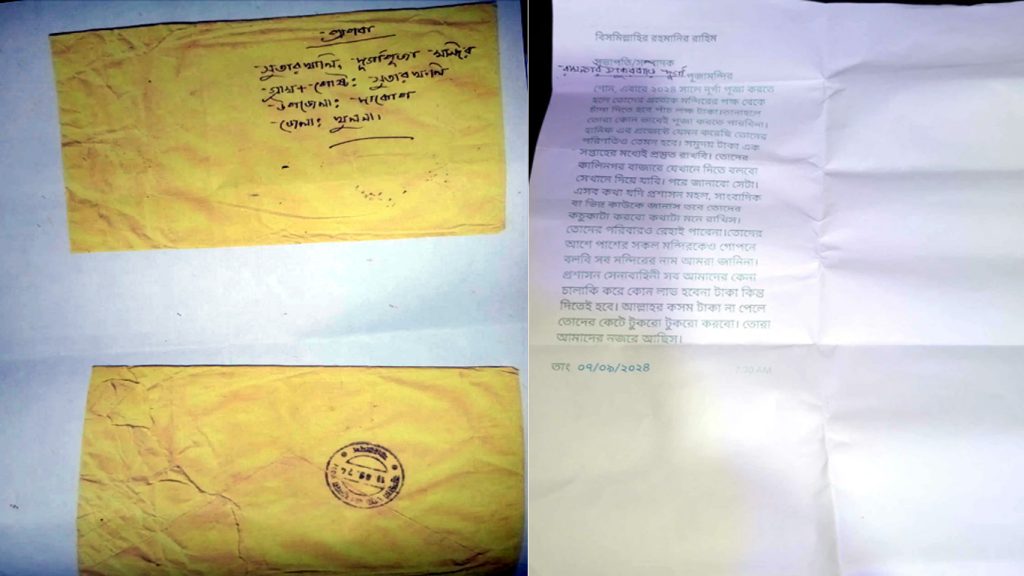 প্রাপক
সুতারখালি, দুর্গাপূজা মন্দির
গ্রাম + পোষ্ট: সুতারখালি
উপজেলা: দাকোপ
জেলা: খুলনা।
বিসমিল্লাহির রহমানির রাহিম
সভাপতি/সম্পাদক
দুর্গা পূজামন্দির
শোন, এবারে ২০২৪ সালে দুর্গা পূজা করতে
হলে তোদের প্রত্যেক মন্দিরের পক্ষ থেকে
চাঁদা দিতে হবে পাঁচ লক্ষ টাকা।তানাহলে
তোরা কোন ভাবেই পূজা করতে পারবিনা।
যেমন করেছি তোদের
পরিণতিও তেমন হবে। সমুদয় টাকা এক
সপ্তাহের মধ্যেই প্রস্তুত রাখবি। তোদের
কালিনগর বাজারে যেখানে দিতে বলবো
সেখানে গিয়ে যাবি। পরে জানাবো সেটা।
এসব কথা যদি প্রশাসন মহল, সাংবাদিক
বা ভিন্ন কাউকে জানাস তবে তোদের
কচুকাটা করবো কথাটা মনে রাখিস।
তোদের পরিবারও রেহাই পাবেনা।তোদের
আশে পাশের সকল মন্দিরকেও গোপনে
বলবি সব মন্দিরের নাম আমরা জানিনা।
প্রশাসন সেনাবাহিনী সব আমাদের কেনা
চালাকি করে কোন লাভ হবেনা টাকা কিন্তু
দিতেই হবে। আল্লাহর কসম টাকা না পেলে
তোদের কেটে টুকরো টুকরো করবো। তোরা
আমাদের নজরে আছিস।
তাং ০৭/০৯/২০২৪
7:30 AM